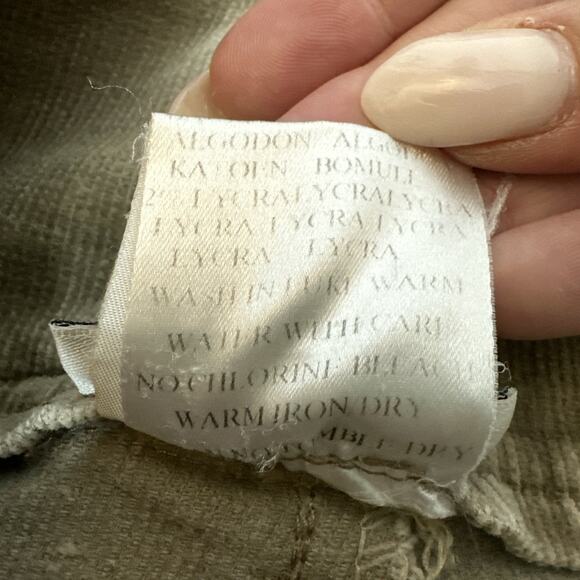 ALGODON ALGO
KATOEN BOMULL
2% LYCRA LYCRA LYCRA
LYCRA LYCRA LYCRA
LYCRA LYCRA
WASH IN LUKE WARM
WATER WITH CARE
NO CHLORINE BLEACH
WARM IRON DRY
NO TUMBLE DRY